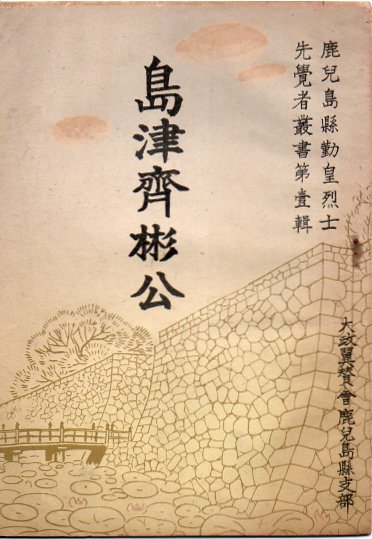 鹿兒島縣勤皇烈士
先覺者叢書第壹輯
島津齊彬公
大政翼賛會鹿兒島縣支部